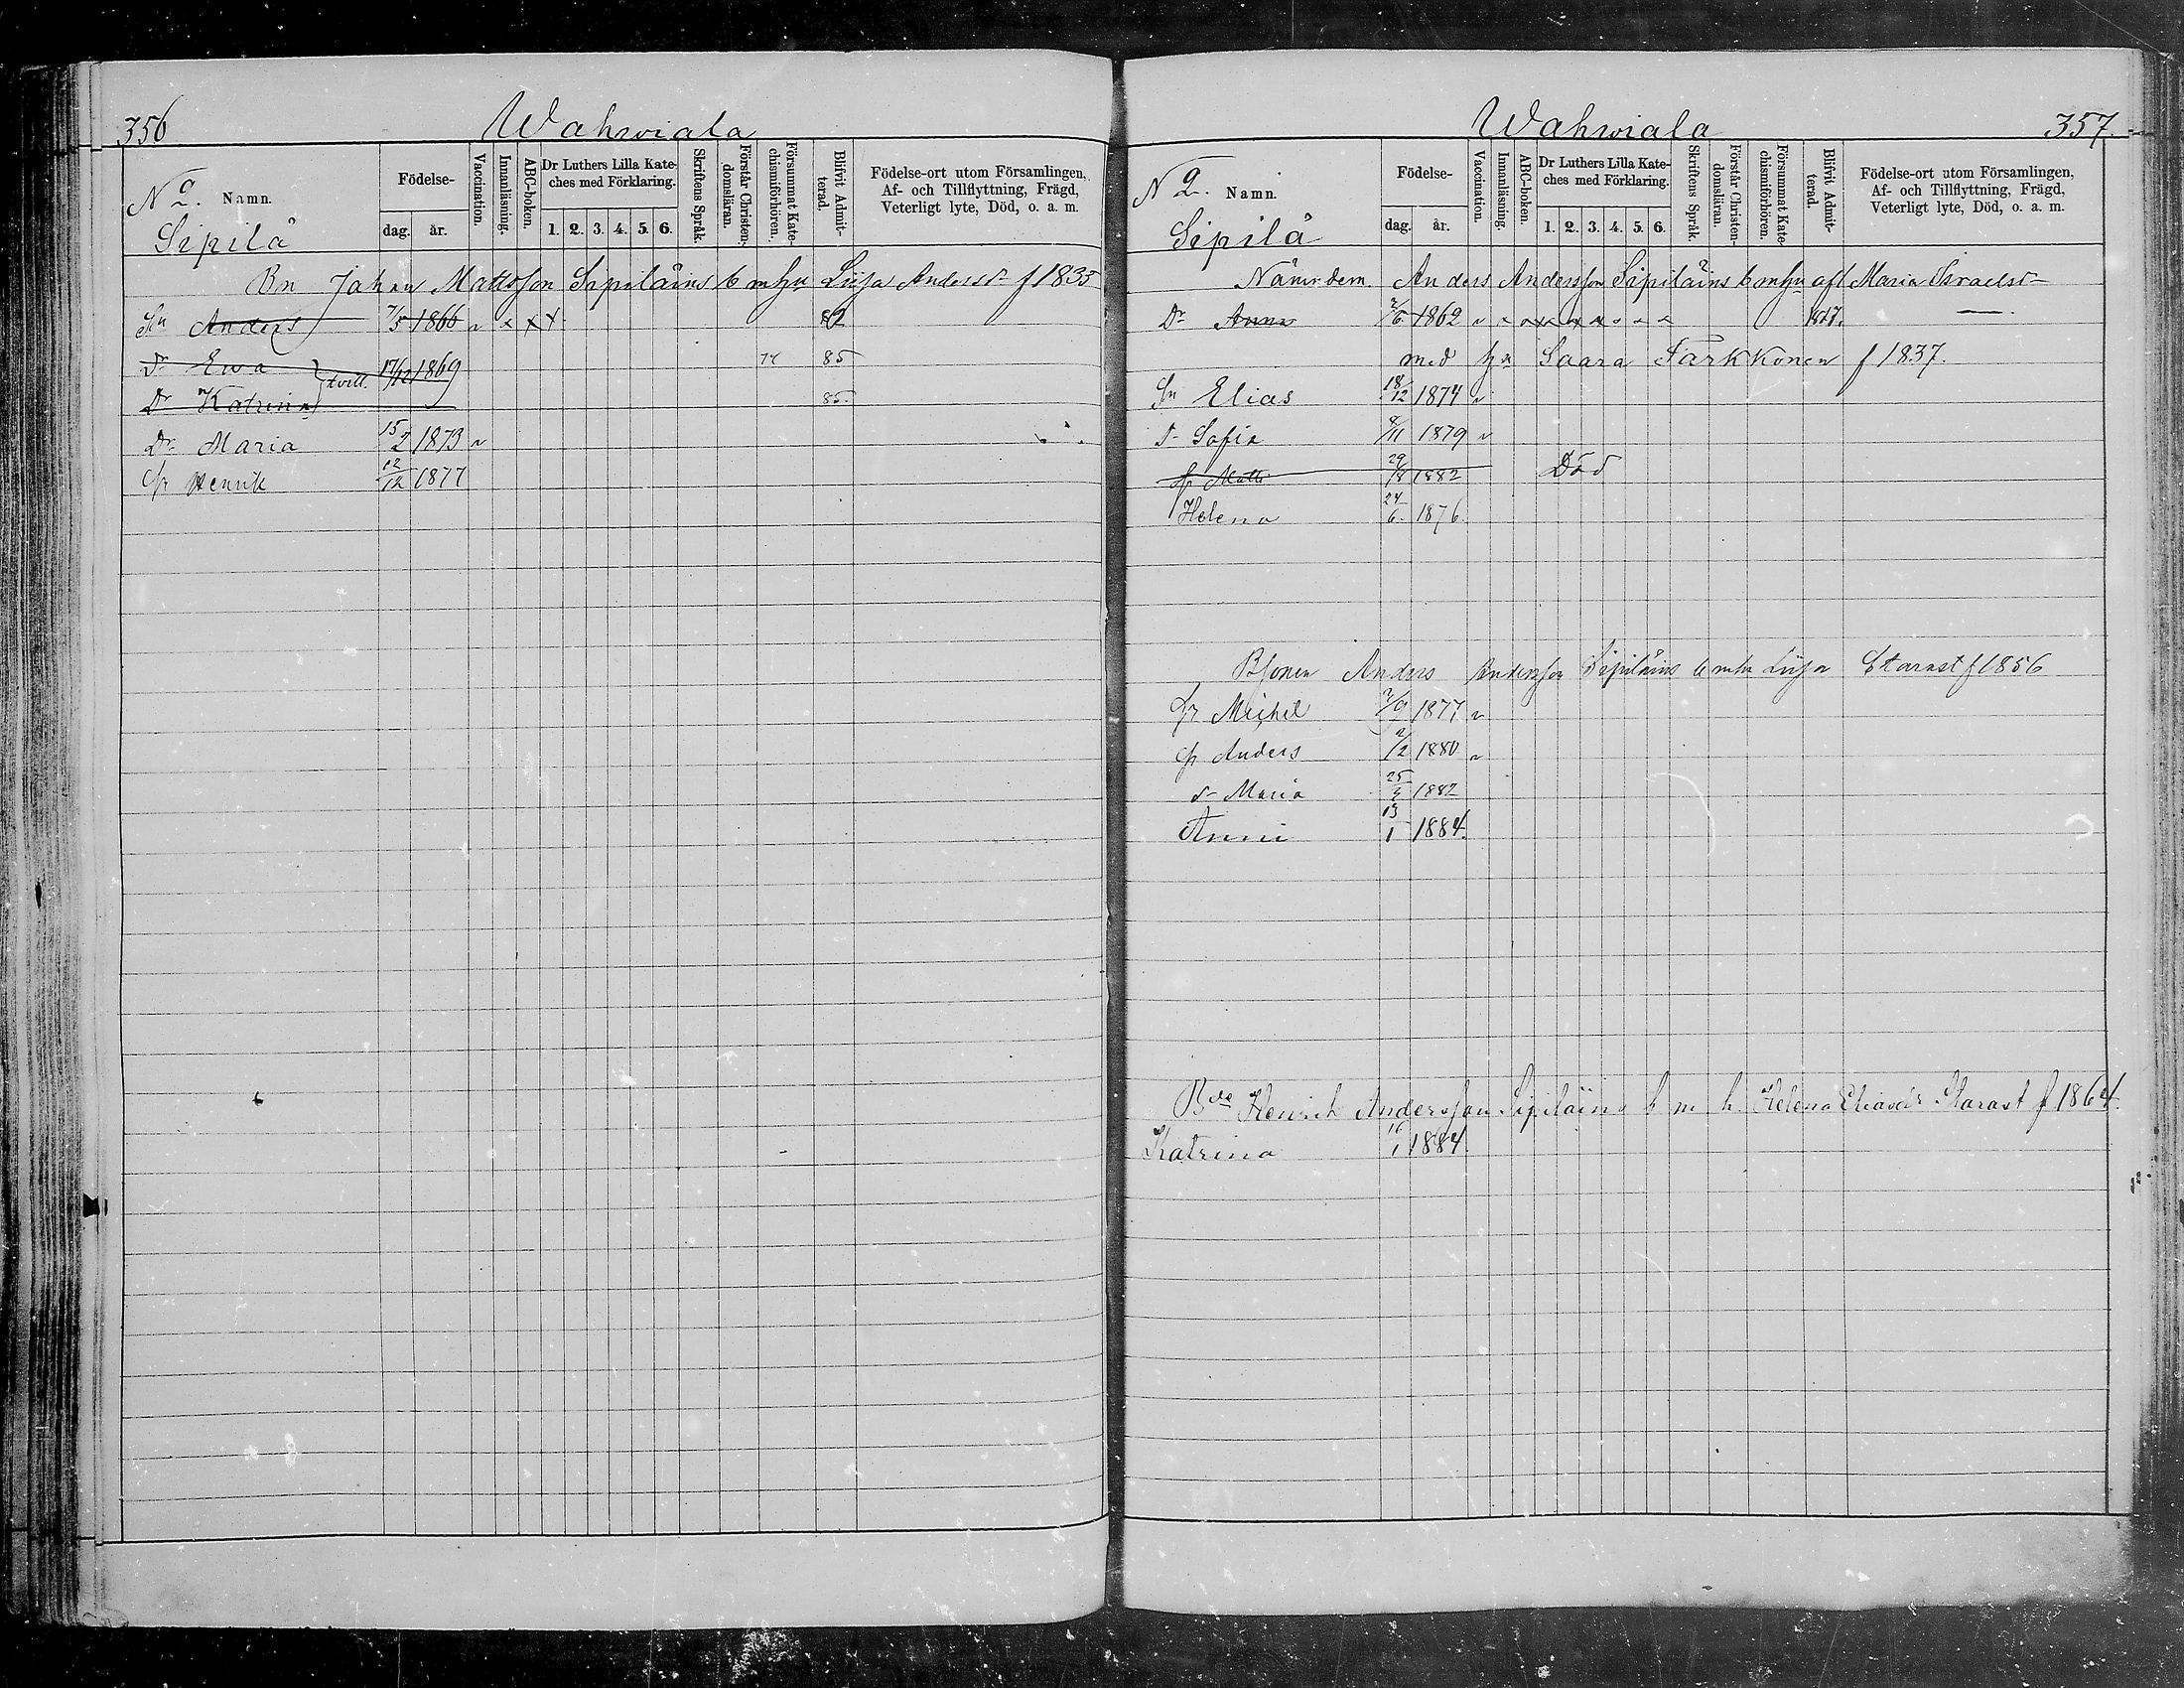 356
Wahwiala
No 2. Namn.
Födelse-
dag. år.
Vaccination.
Innanläsning.
ABC-boken.
Dr Luthers Lilla Kate-
ches med Förklaring.
1. 2. 3. 4. 5. 6.
Skriftens Språk.
Förstår Christen-
domsläran.
Försummat Kate-
chismiförhören.
Blifvit Admit-
terad.
Födelse-ort utom Församlingen,
Af- och Tillflyttning, Frägd,
Veterligt lyte, Död, o. a. m.
Sipilä
Bn Johan Mattsson Sipiläins b m hu Liisa Andersdr f 1835
Sn Anders 7/5 1866 v x x x 82
Dr Ewa 17/12 1869 85
tvill.
Dr Katrina 85.
Dr Maria 15/2 1873 v
Sn Henrik 12/12 1877
Wahwiala
357.
No 2. Namn.
Födelse-
dag. år.
Vaccination.
Innanläsning.
ABC-boken.
Dr Luthers Lilla Kate-
ches med Förklaring.
1. 2. 3. 4. 5. 6.
Skriftens Språk.
Förstår Christen-
domsläran.
Försummat Kate-
chismiförhören.
Blifvit Admit-
terad.
Födelse-ort utom Församlingen,
Af- och Tillflyttning, Frägd,
Veterligt lyte, Död, o. a. m.
Sipilä
Nämndem. Anders Andersson Sipiläins b m hu afl Maria Israelsdr
Dr Anna 2/6 1862 v x x x x x x x x
med hu Saara Tarkkonen f 1837.
Sn Elias 18/12 1874 v
d Sofia 8/11 1879 v
Sn Matts 29/8 1882 Död
Helena 24/6. 1876.
Bsonen Anders Andersson Sipiläins b m hu Liisa Starast f 1856
Sn Michel 2/9 1877 v
Sn Anders 2/2 1880 v
d Maria 25/3 1882
Anni 13/1 1884.
Bde Henrik Andersson Sipiläins b m h. Helena Eliasdr Starast f 1864.
Katrina 16/1 1884